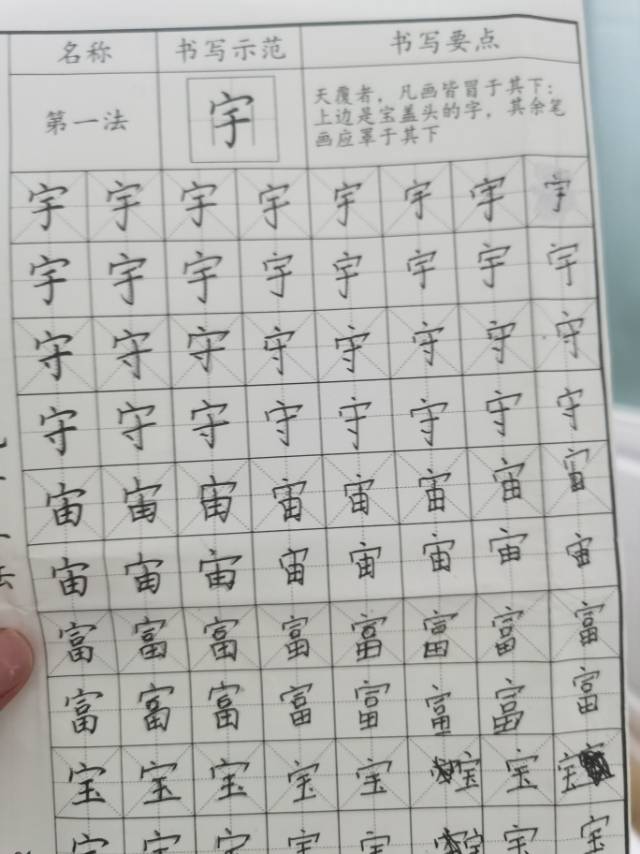 名称 书写示范 书写要点
第一法 宇 天覆者，凡画皆冒于其下：
上边是宝盖头的字，其余笔
画应罩于其下
宇 宇 宇 宇 宇 宇 宇 宇
宇 宇 宇 宇 宇 宇 宇 宇
守 守 守 守 守 守 守 守
守 守 守 守 守 守 守 守
宙 宙 宙 宙 宙 宙 宙 宙
宙 宙 宙 宙 宙 宙 宙 宙
富 富 富 富 富 富 富 富
富 富 富 富 富 富 富 富
宝 宝 宝 宝 宝 宝 宝 宝